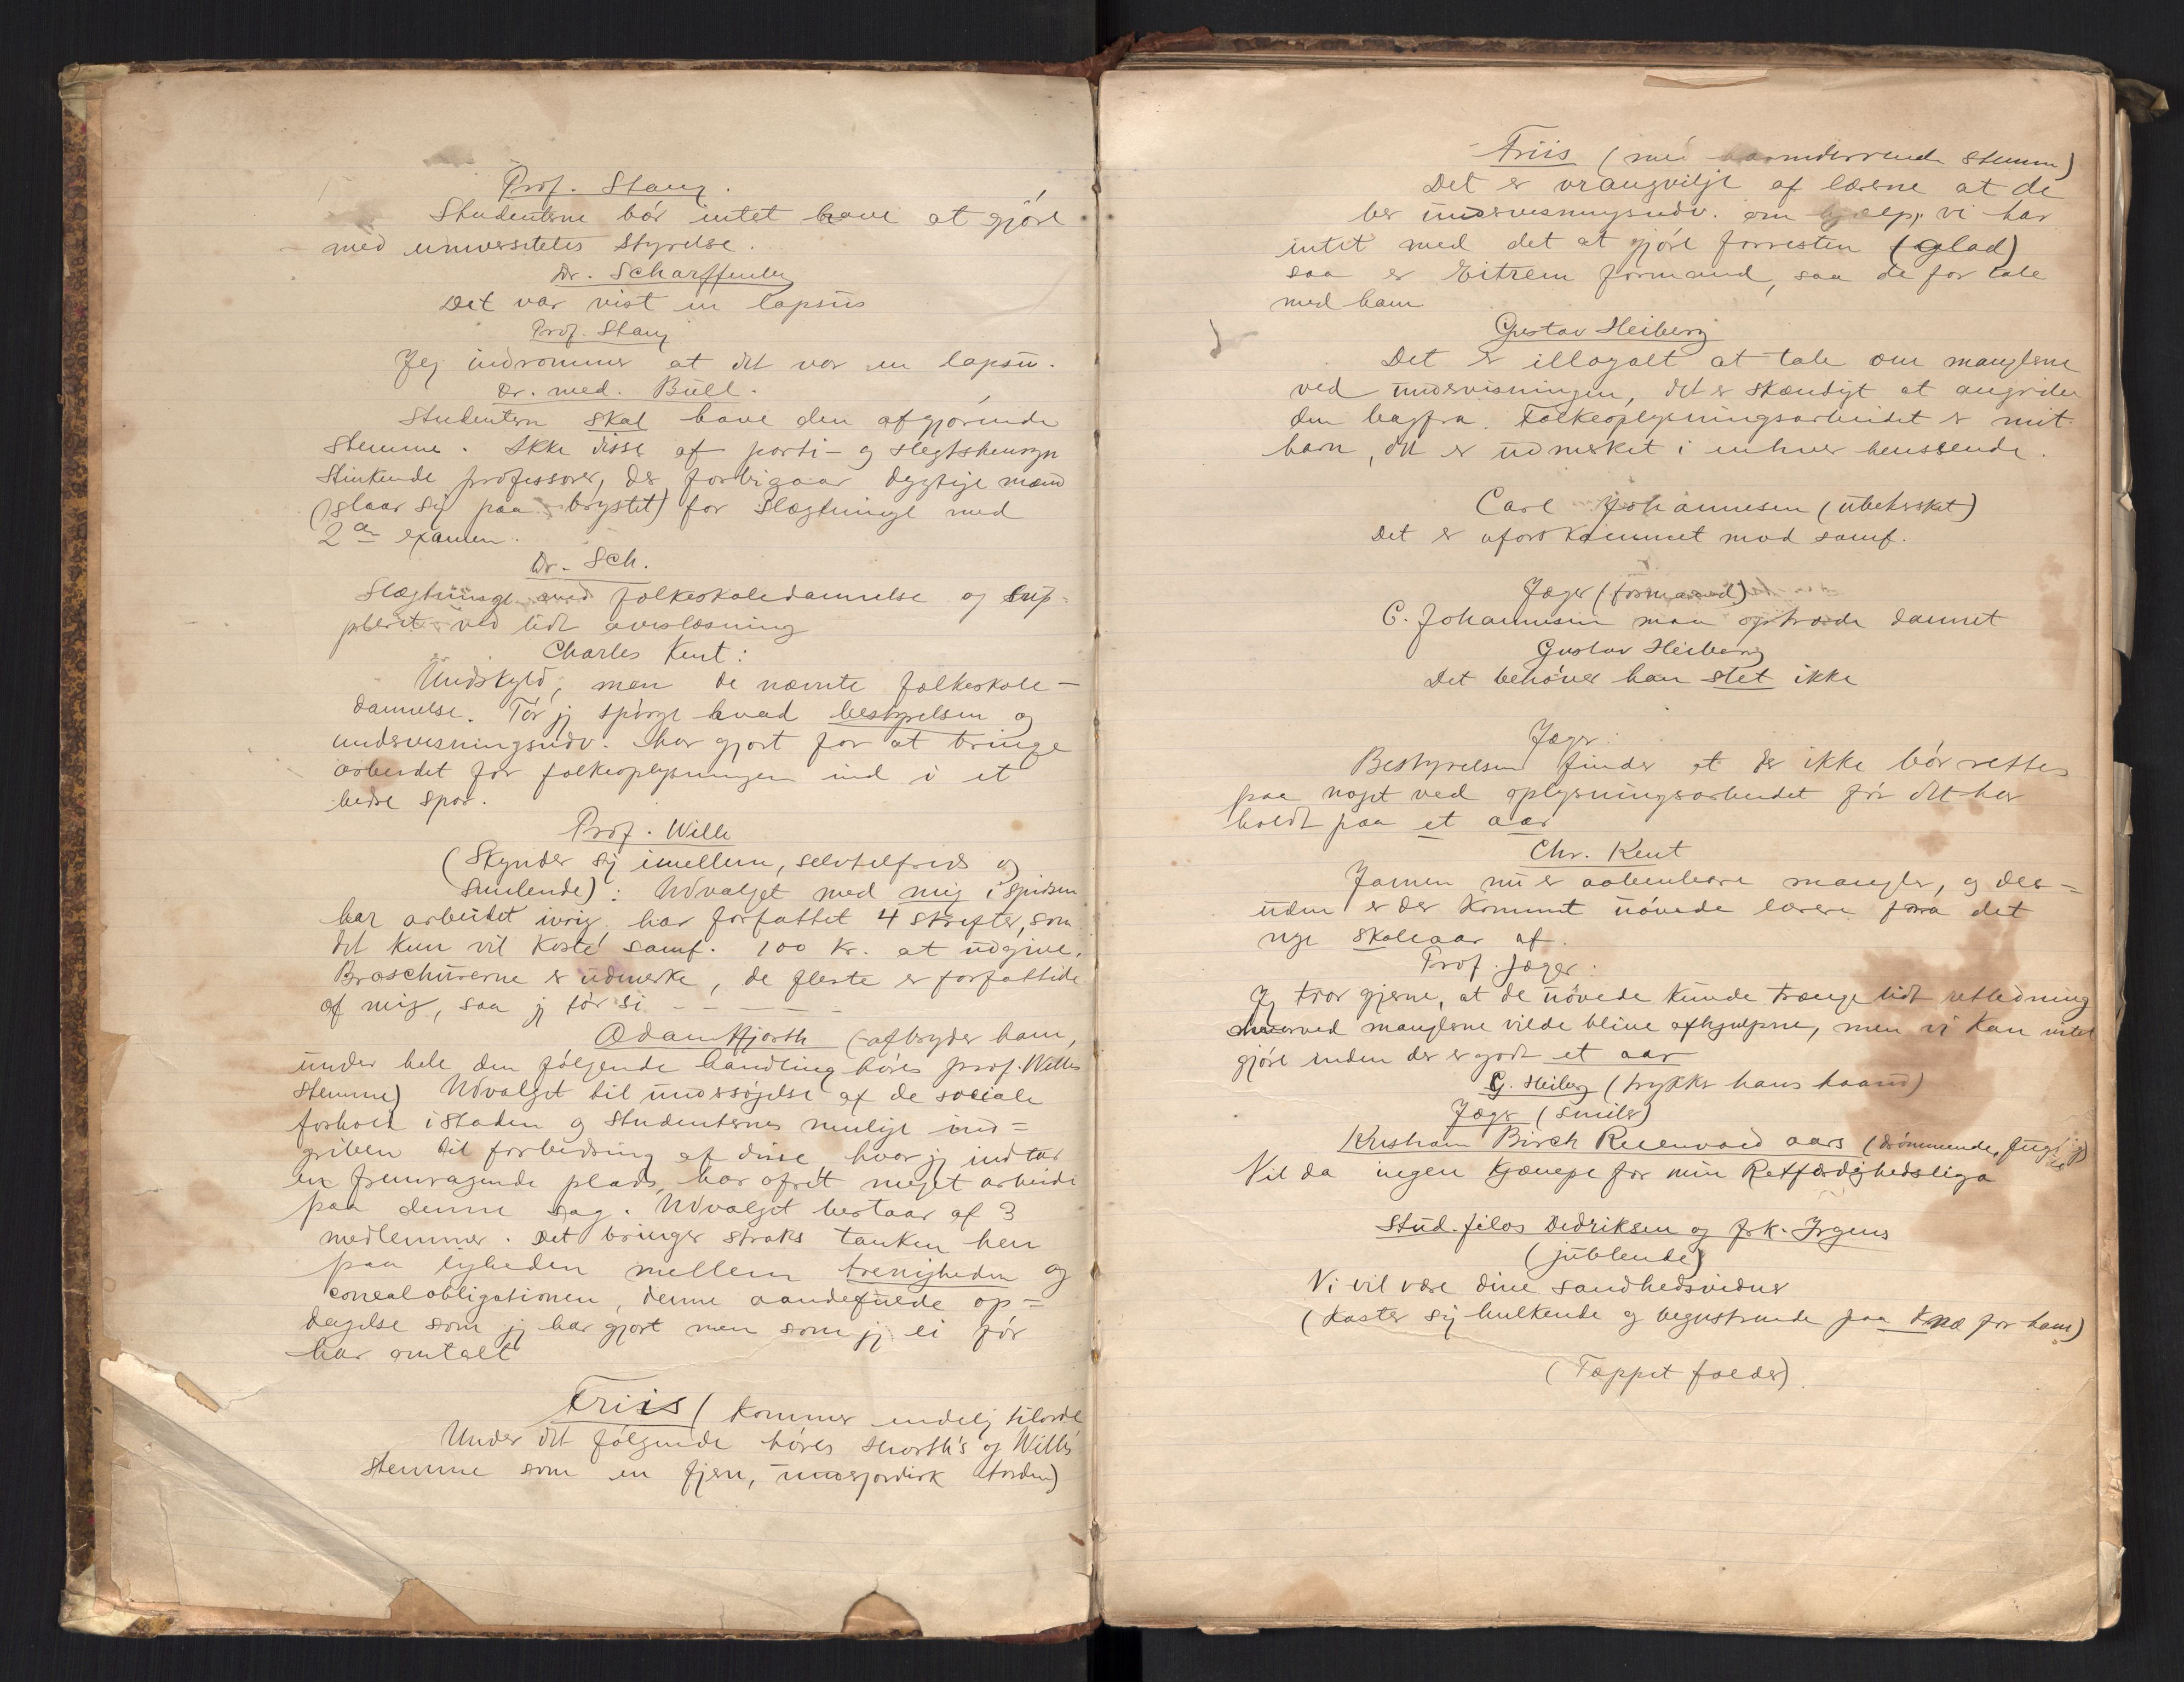 Prof. Stang.
Studenterne bør intet have at gjøre
med universitetes styrelse.
Dr. Scharffenberg
Det var vist en lapsus
Prof. Stang
Jeg indrømmer at det var en lapsus.
Dr. med. Bull.
Studentern skal have den afgjørende
stemme. Ikke disse af parti- og slegtshensyn
stinkende professorer, der forbigaar dygtige mænd
(slaar sig paa brystet) for slægtninge med
2den examen.
Dr. Sch.
Slægtninge med folkeskoledannelse og sup-
pleret ved lidt avislæsning
Charles Kent:
Undskyld, men de nævnte folkeskole-
dannelse. Tør jeg spørge hvad bestyrelsen og
undervisningsudv. har gjort for at bringe
arbeidet for folkeoplysningen ind i et
bedre spor.
Prof. Wille
(Skynder sig imellem, selvtilfreds og
smilende): Udvalget med mig i spidsen
har arbeidet ivrig, har forfattet 4 skrifter, som
det kun vil koste samf. 100 kr. at udgive.
Broschürerne er udmerke, de fleste er forfattede
af mig, saa jeg tør si - - - - -
Adam Hjorth (afbryder ham,
under hele den følgende handling høres prof. Willes
stemme) Udvalget til undersøgelse af de sociale
forhold i staden og studenternes mulige ind=
griben til forbedring af disse hvor jeg indtar
en fremragende plads, har ofret meget arbeide
paa denne sag. Udvalget bestaar af 3
medlemmer. Det bringer straks tanken hen
paa ligheden mellem trenigheden og
correalobligationen, denne aandefulde op=
dagelse som jeg har gjort men som jeg ei før
har omtalt
Friis (kommer endelig tilorde
Under det følgende høres Hjorth's og Willes
stemme som en fjern, underjordisk torden)
Friis (med stemme)
Det er vrangvilje af lærerne at de
ber undervisningsudv. om hjælp, vi har
intet med det at gjøre forresten (glad)
saa er Eitrem formand, saa de for tale
med ham
Gustav Heiberg
Det er illoyalt at tale om manglerne
ved undervisningen, det er skændigt at angribe
den bagfra. Folkeoplysningsarbeidet er mit
barn, det er udmerket i enhver henseende.
Carl Johannesen (ubehersket)
Det er uforskammet mod samf.
Jæger (formand)
C. Johannesen maa optræde dannet
Gustav Heiberg
Det behøver han slet ikke
Jæger:
Bestyrelsen finder at der ikke bør rettes
paa noget ved oplysningsarbeidet før det har
holdt paa et aar
Chr. Kent
Jamen nu er aabenbare mangler, og des=
uden er der kommet uøvede lærere fra det
nye skoleaar af.
Prof. Jæger:
Jeg tror gjerne, at de uøvede kunde trænge lidt veiledning
hvorved manglerne vilde blive afhjulpne, men vi kan intet
gjøre inden der er godt et aar
G. Heiberg (trykker hans haand)
Jæger (smiler)
Kristian Birch Reichenwald Aars (drømmende,
Vil da ingen kjæmpe for min Retfærdighedsliga
Stud. filos Dedriksen og frk. Irgens
(jublende)
Vi vil være dine sandhedsvidner
(Kaster sig hulkende og begeistrende paa knæ for ham)
(Tæppet falder).